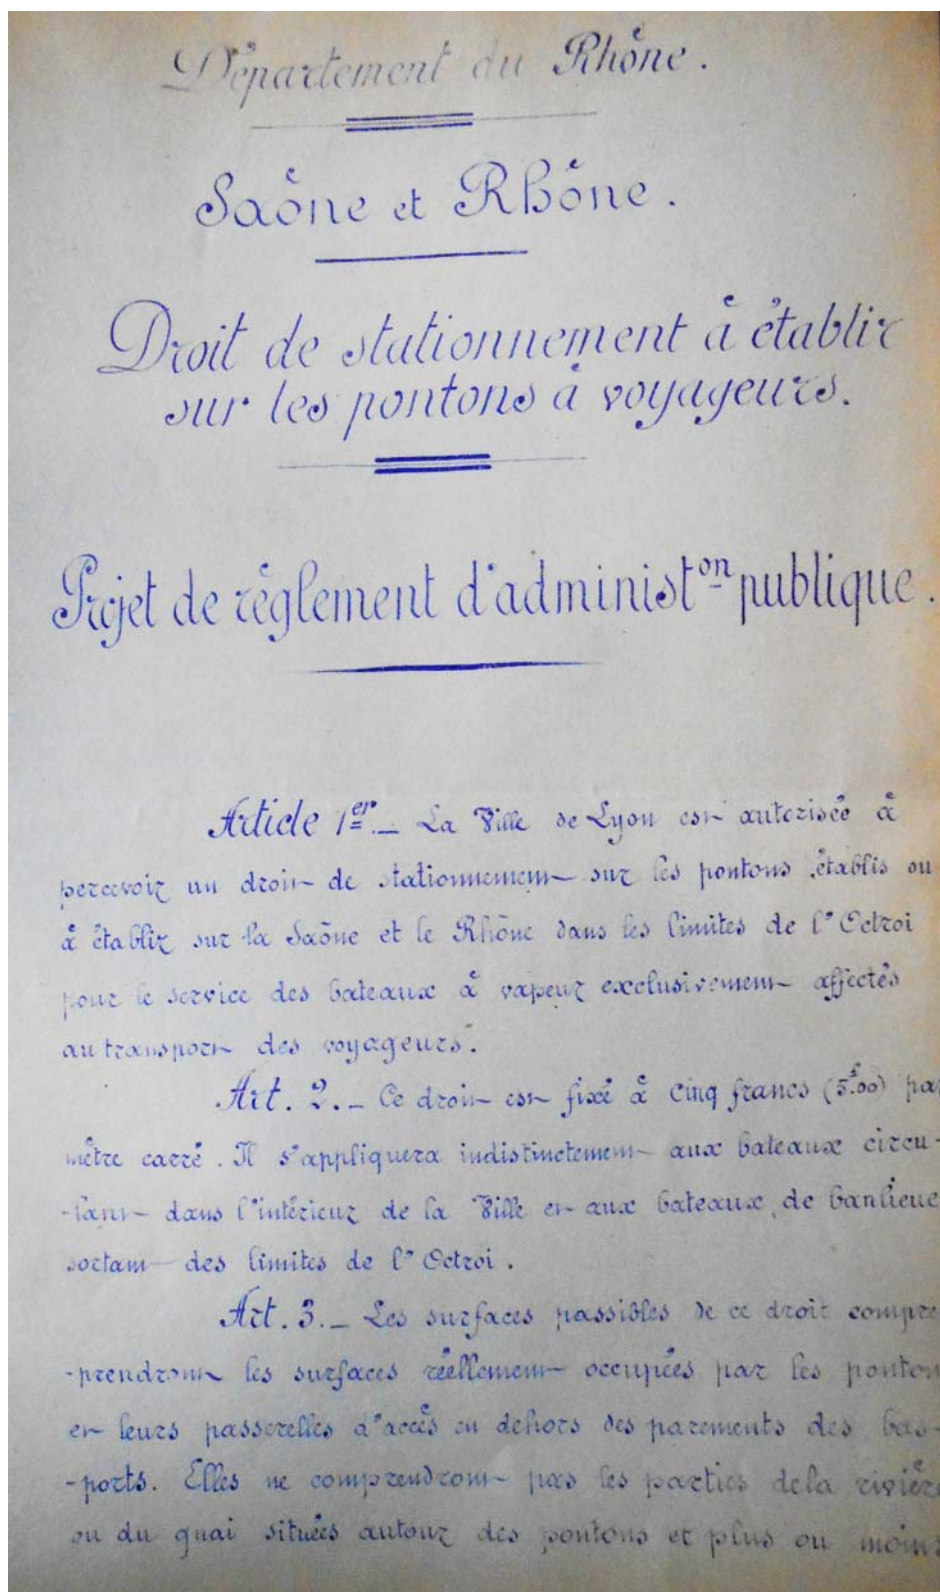 Département du Rhône.
Saône et Rhône.
Droit de stationnement à établir
sur les pontons à voyageurs.
Projet de règlement d'administon publique.
Article 1er. _ La Ville de Lyon est autorisée à
percevoir un droit de stationnement sur les pontons établis ou
à établir sur la Saône et le Rhône dans les limites de l'Octroi
pour le service des bateaux à vapeur exclusivement affectés
au transport des voyageurs.
Art. 2. _ Ce droit est fixé à cinq francs (5f.00) par
mètre carré. Il s'appliquera indistinctement aux bateaux circu-
-lant dans l'intérieur de la Ville et aux bateaux de banlieue
sortant des limites de l'Octroi.
Art. 3. _ Les surfaces passibles de ce droit compre
-prendront les surfaces réellement occupées par les ponton
et leurs passerelles d'accès en dehors des parements des bas-
-ports. Elles ne comprendront pas les parties de la rivière
ou du quai situées autour des pontons et plus ou moins